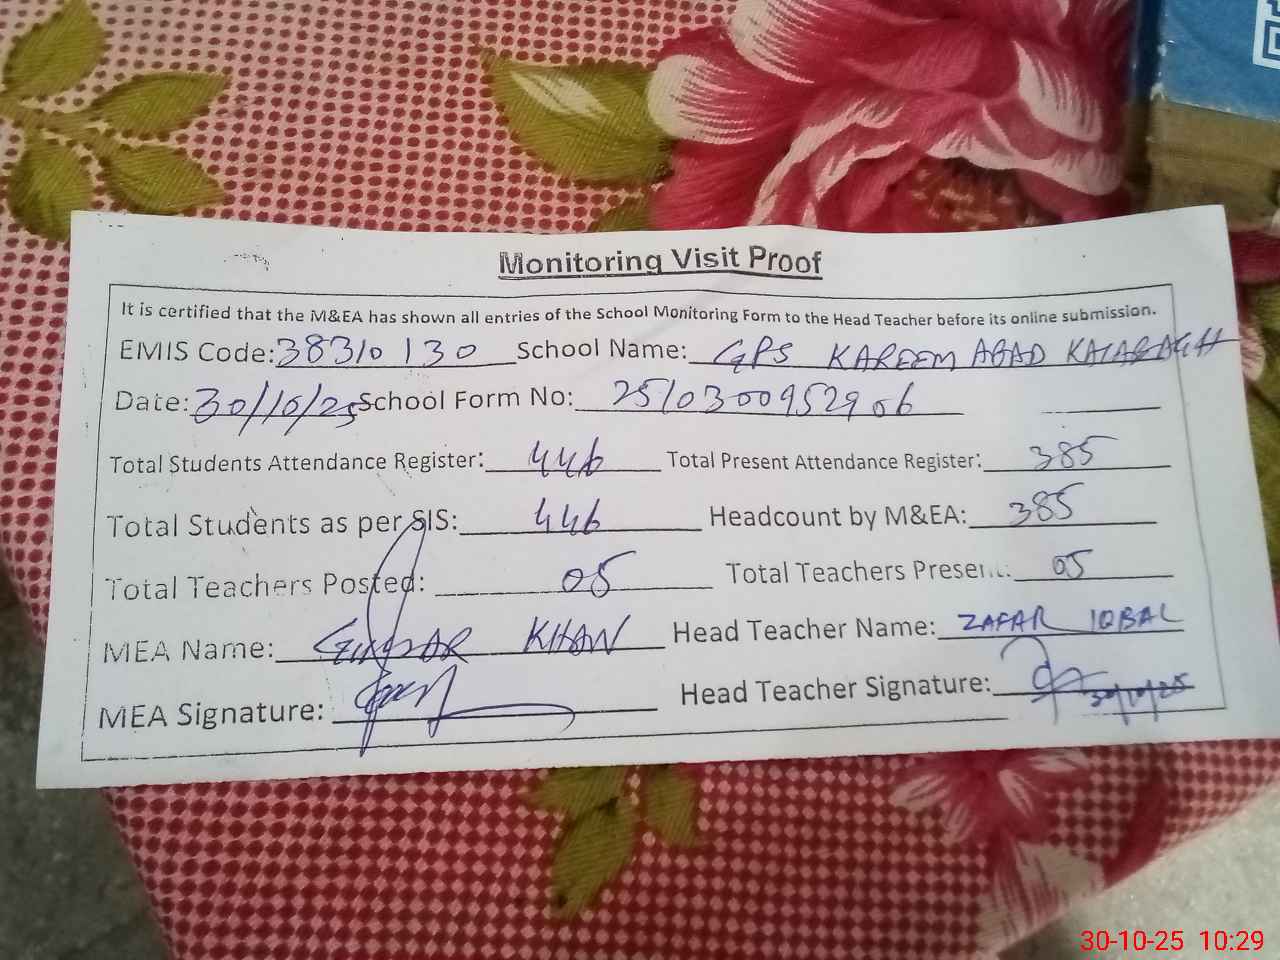 Monitoring Visit Proof
It is certified that the M&EA has shown all entries of the School Monitoring Form to the Head Teacher before its online submission.
EMIS Code: 38310130 School Name: GPS KAREEM ABAD KALABAGH
Date: 30/10/25 School Form No: 2510300952906
Total Students Attendance Register: 446 Total Present Attendance Register: 385
Total Students as per SIS: 446 Headcount by M&EA: 385
Total Teachers Posted: 05 Total Teachers Present: 05
MEA Name: KHAN Head Teacher Name: ZAFAR IQBAL
MEA Signature: Head Teacher Signature: 30/10/25
30-10-25 10:29